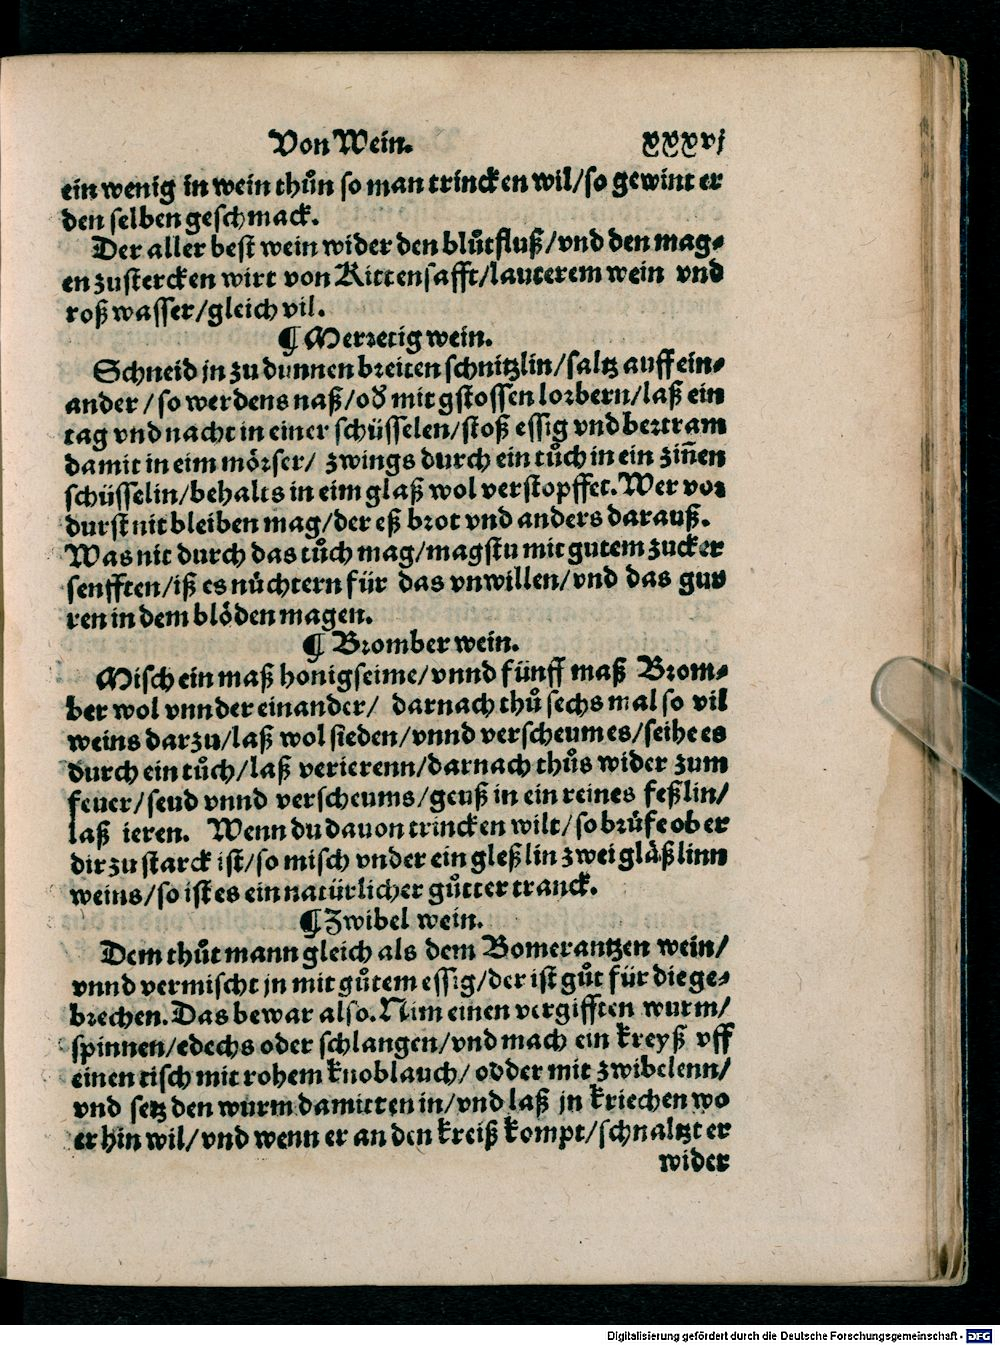 Von Wein. xxxvj
ein wenig in wein thůn so man trincken wil/so gewint er
den selben geschmack.
Der aller best wein wider den blůtfluß/vnd den mag⸗
en zustercken wirt von Kittensafft/lauterem wein vnd
roß wasser/gleich vil.
¶ Merretig wein.
Schneid jn zu dunnen breiten schnitzlin/saltz auff ein⸗
ander/so werdens naß/oď mit gstossen lorbern/laß ein
tag vnd nacht in einer schüsselen/stoß essig vnd bertram
damit in eim mörser/ zwings durch ein tůch in ein zin̄en
schüsselin/behalts in eim glaß wol verstopffet. Wer vor
durst nit bleiben mag/der eß brot vnd anders darauß.
Was nit durch das tůch mag/magstu mit gutem zucker
senfften/iß es nůchtern für das vnwillen/vnd das gur
ren in dem blöden magen.
¶ Bromber wein.
Misch ein maß honigseime/vnnd fünff maß Brom⸗
ber wol vnnder einander/ darnach thů sechs mal so vil
weins darzu/laß wol sieden/vnnd verscheum es/seihe es
durch ein tůch/laß verierenn/darnach thůs wider zum
feuer/seud vnnd verscheums/geuß in ein reines feßlin/
laß ieren. Wenn du dauon trincken wilt/so brůfe ob er
dir zu starck ist/so misch vnder ein gleßlin zwei gläßlinn
weins/so ist es ein natürlicher gůtter tranck.
¶ Zwibel wein.
Dem thůt mann gleich als dem Bomerantzen wein/
vnnd vermischt jn mit gůtem essig/der ist gůt für die ge⸗
brechen. Das bewar also. Nim einen vergifften wurm/
spinnen/edechs oder schlangen/vnd mach ein kreyß vff
einen tisch mit rohem knoblauch/ odder mit zwibelenn/
vnd setz den wurm damitten in/vnd laß jn kriechen wo
er hin wil/vnd wenn er an den kreiß kompt/schnaltzt er
wider
Digitalisierung gefördert durch die Deutsche Forschungsgemeinschaft - DFG